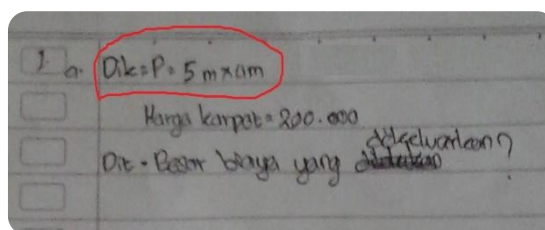 1. a. Dik = P = 5 m x 4m
Harga karpet = 200.000
Dit = Besar biaya yang dikeluarkan?